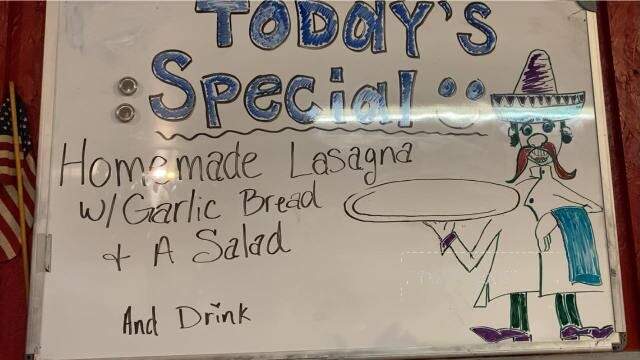 TODAY'S
SPECIAL
Homemade Lasagna
w/Garlic Bread
+ A Salad
And Drink